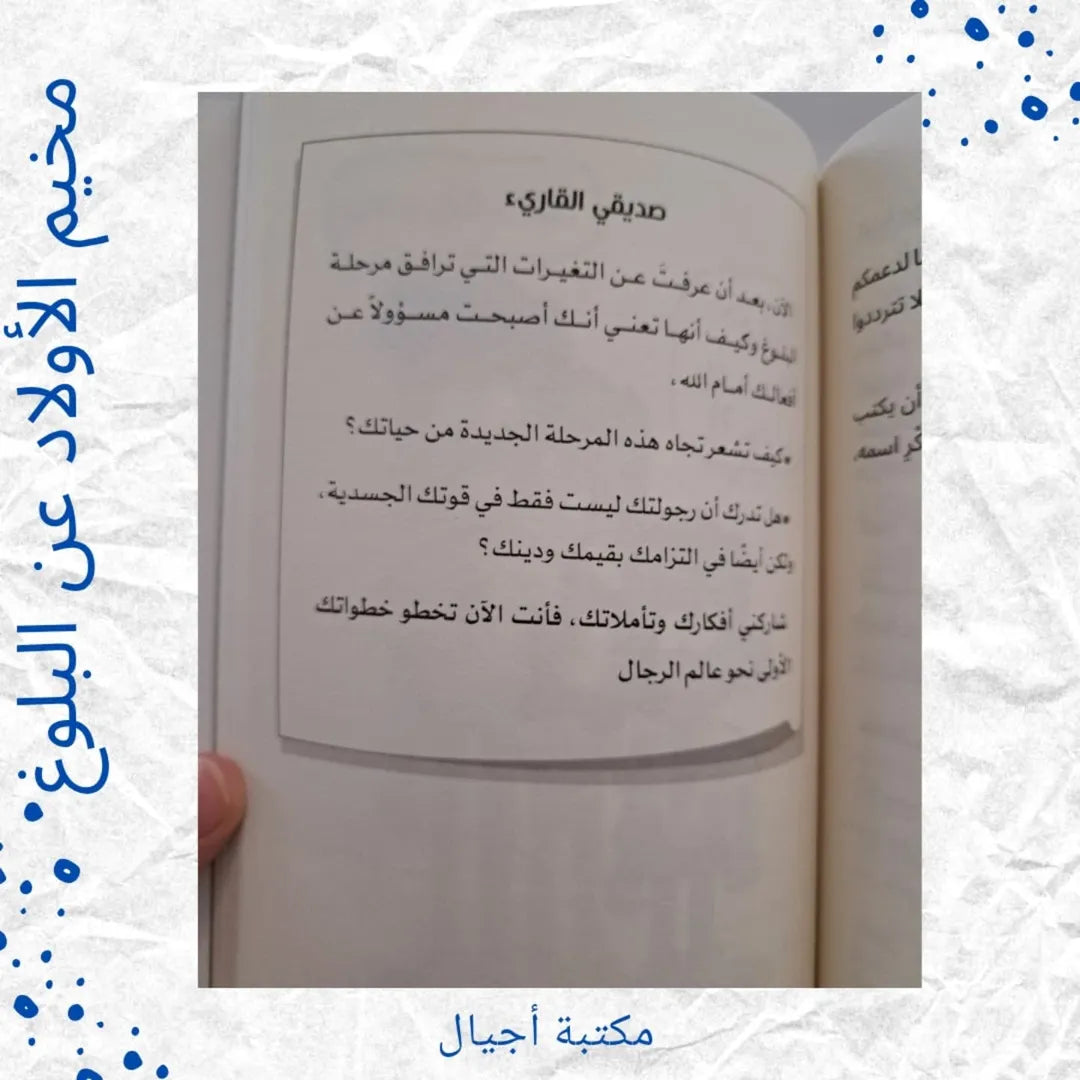 مخيم الأولاد عن البلوغ
صديقي القاريء
الآن، بعد أن عرفتَ عن التغيرات التي ترافق مرحلة
البلوغ وكيف أنها تعني أنك أصبحت مسؤولاً عن
أفعالك أمام الله،
*كيف تشعر تجاه هذه المرحلة الجديدة من حياتك؟
*هل تدرك أن رجولتك ليست فقط في قوتك الجسدية،
ولكن أيضًا في التزامك بقيمك ودينك؟
شاركني أفكارك وتأملاتك، فأنت الآن تخطو خطواتك
الأولى نحو عالم الرجال
لدعمكم
لا تترددوا
أن يكتب
اسمه،
مكتبة أجيال